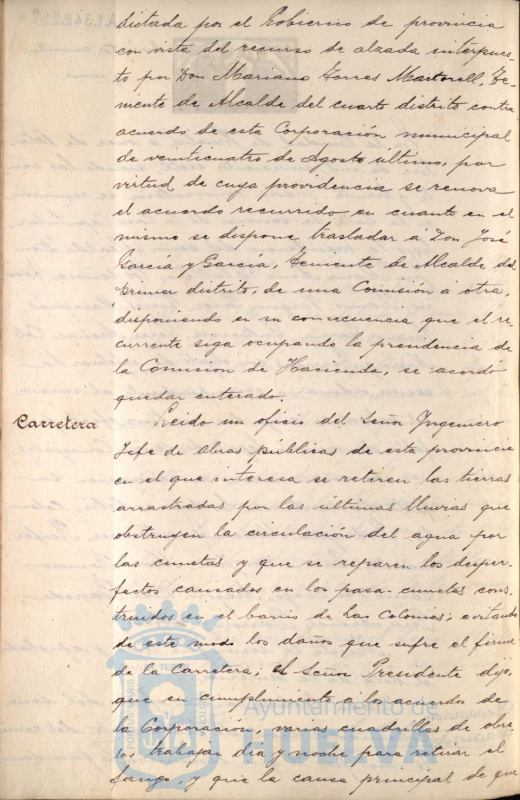 dictada por el Gobierno de provincia
con vista del recurso de alzada interpues-
to por Don Mariano Torres Martorell, Te-
niente de Alcalde del cuarto distrito contra
acuerdo de esta Corporación municipal
de veinticuatro de Agosto último, por
virtud de cuya providencia se renova
el acuerdo recurrido en cuanto en el
mismo se dispone trasladar á Don José
García y García, Teniente de Alcalde del
primer distrito, de una Comisión á otra,
disponiendo en su consecuencia que el re-
currente siga ocupando la presidencia de
la Comision de Hacienda, se acordó
quedar enterado.
Carretera
Leido un oficio del Señor Ingeniero
Jefe de obras públicas de esta provincia
en el que interesa se retiren las tierras
arrastradas por las últimas lluvias que
obstruyen la circulación del agua por
las cunetas y que se reparen los desper-
fectos causados en los pasa-cunetas cons-
truidos en el barrio de las Colonias; evitando
de este modo los daños que sufre el firme
de la Carretera; el Señor Presidente dijo,
que en cumplimiento a los acuerdos de
la Corporación, varias cuadrillas de obre-
ros trabajan dia y noche para retirar el
fango, y que la causa principal de que
Ayuntamiento de
HUELVA